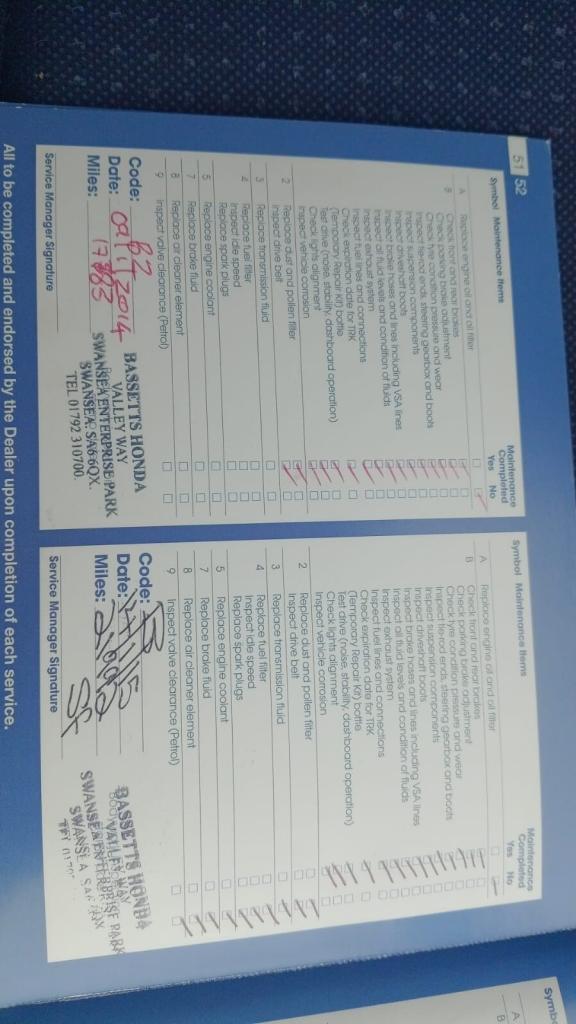 51 52
Symbol Maintenance Items Maintenance Completed
Yes No
A Replace engine oil and oil filter
B Check front and rear brakes
Check parking brake adjustment
Check tyre condition pressure and wear
Inspect tie-rod ends, steering gearbox and boots
Inspect suspension components
Inspect driveshaft boots
Inspect brake hoses and lines including VSA lines
Inspect all fluid levels and condition of fluids
Inspect exhaust system
Inspect fuel lines and connections
Check expiration date for TRK
(Temporary Repair Kit) bottle
Test drive (noise, stability, dashboard operation)
Check lights alignment
Inspect vehicle corrosion
2 Replace dust and pollen filter
Inspect drive belt
3 Replace transmission fluid
4 Replace fuel filter
Inspect idle speed
Replace spark plugs
5 Replace engine coolant
7 Replace brake fluid
8 Replace air cleaner element
9 Inspect valve clearance (Petrol)
Code: B2
Date: 2014
Miles:
BASSETTS HONDA
VALLEY WAY
SWANSEA ENTERPRISE PARK
SWANSEA. SA6 6QX.
TEL 01792 310700.
Service Manager Signature
Symbol Maintenance Items Maintenance Completed
Yes No
A Replace engine oil and oil filter
B Check front and rear brakes
Check parking brake adjustment
Check tyre condition pressure and wear
Inspect tie-rod ends, steering gearbox and boots
Inspect suspension components
Inspect driveshaft boots
Inspect brake hoses and lines including VSA lines
Inspect all fluid levels and condition of fluids
Inspect exhaust system
Inspect fuel lines and connections
Check expiration date for TRK
(Temporary Repair Kit) bottle
Test drive (noise, stability, dashboard operation)
Check lights alignment
Inspect vehicle corrosion
2 Replace dust and pollen filter
Inspect drive belt
3 Replace transmission fluid
4 Replace fuel filter
Inspect idle speed
Replace spark plugs
5 Replace engine coolant
7 Replace brake fluid
8 Replace air cleaner element
9 Inspect valve clearance (Petrol)
Code: B
Date:
Miles:
BASSETTS HONDA
VALLEY WAY
SWANSEA ENTERPRISE PARK
SWANSEA
Service Manager Signature
Symbo
A
B
All to be completed and endorsed by the Dealer upon completion of each service.